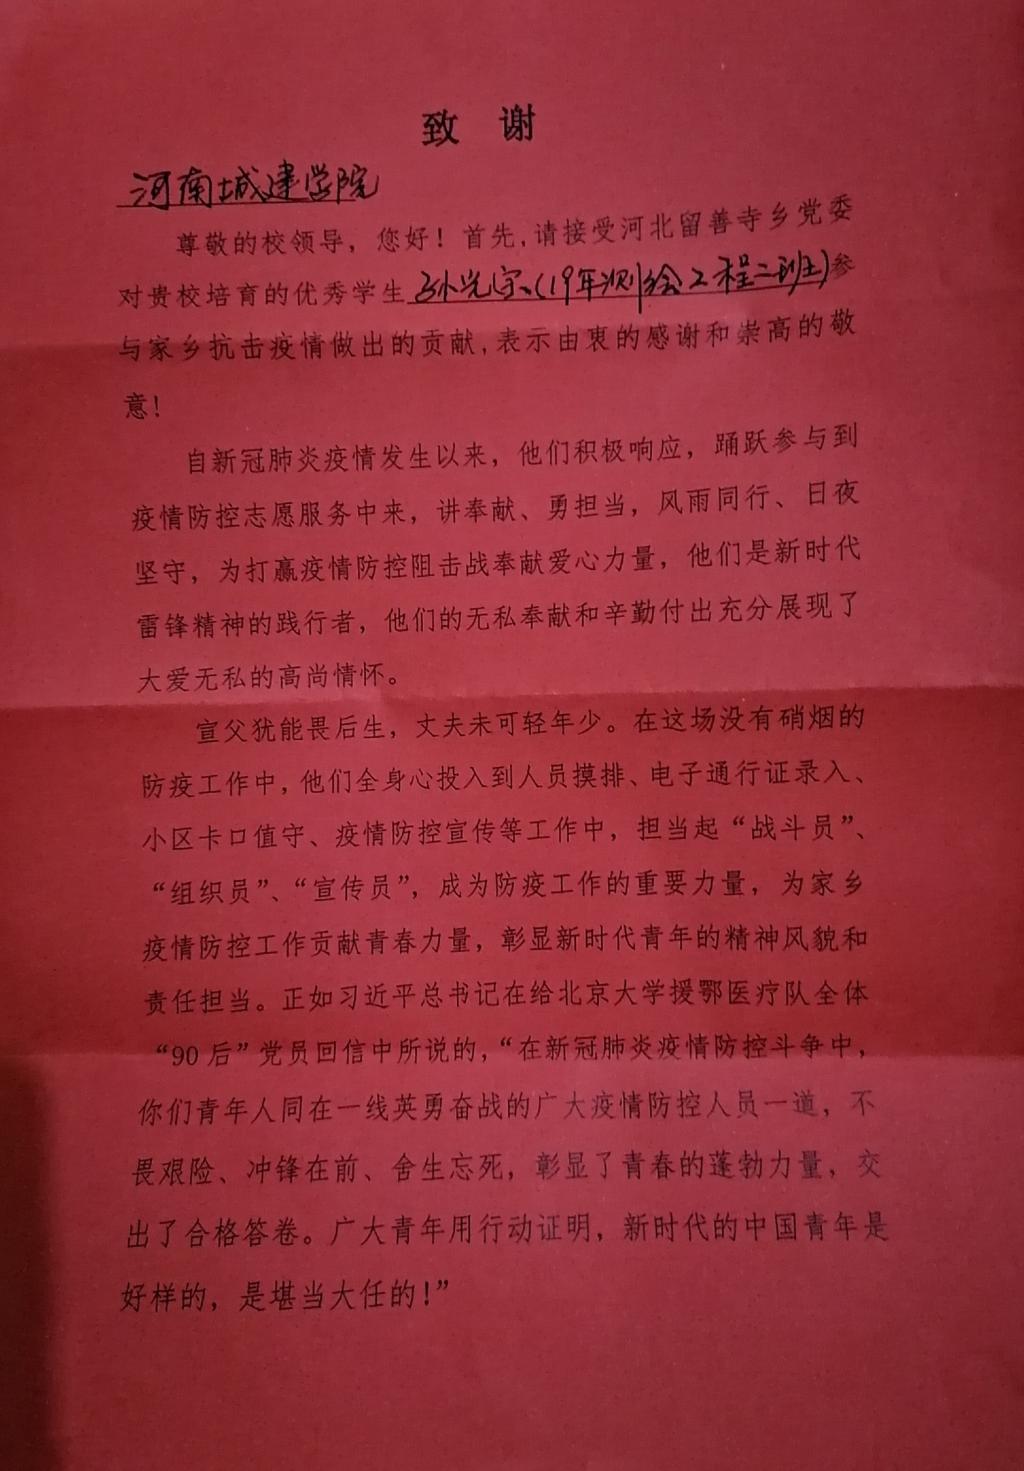 致 谢
河南城建学院
尊敬的校领导，您好！首先,请接受河北留善寺乡党委
对贵校培育的优秀学生孙光宗(19年测绘工程二班)参
与家乡抗击疫情做出的贡献,表示由衷的感谢和崇高的敬
意！
自新冠肺炎疫情发生以来，他们积极响应，踊跃参与到
疫情防控志愿服务中来，讲奉献、勇担当，风雨同行、日夜
坚守，为打赢疫情防控阻击战奉献爱心力量，他们是新时代
雷锋精神的践行者，他们的无私奉献和辛勤付出充分展现了
大爱无私的高尚情怀。
宣父犹能畏后生，丈夫未可轻年少。在这场没有硝烟的
防疫工作中，他们全身心投入到人员摸排、电子通行证录入、
小区卡口值守、疫情防控宣传等工作中，担当起“战斗员”、
“组织员”、“宣传员”，成为防疫工作的重要力量，为家乡
疫情防控工作贡献青春力量，彰显新时代青年的精神风貌和
责任担当。正如习近平总书记在给北京大学援鄂医疗队全体
“90后”党员回信中所说的，“在新冠肺炎疫情防控斗争中，
你们青年人同在一线英勇奋战的广大疫情防控人员一道，不
畏艰险、冲锋在前、舍生忘死，彰显了青春的蓬勃力量，交
出了合格答卷。广大青年用行动证明，新时代的中国青年是
好样的，是堪当大任的！”